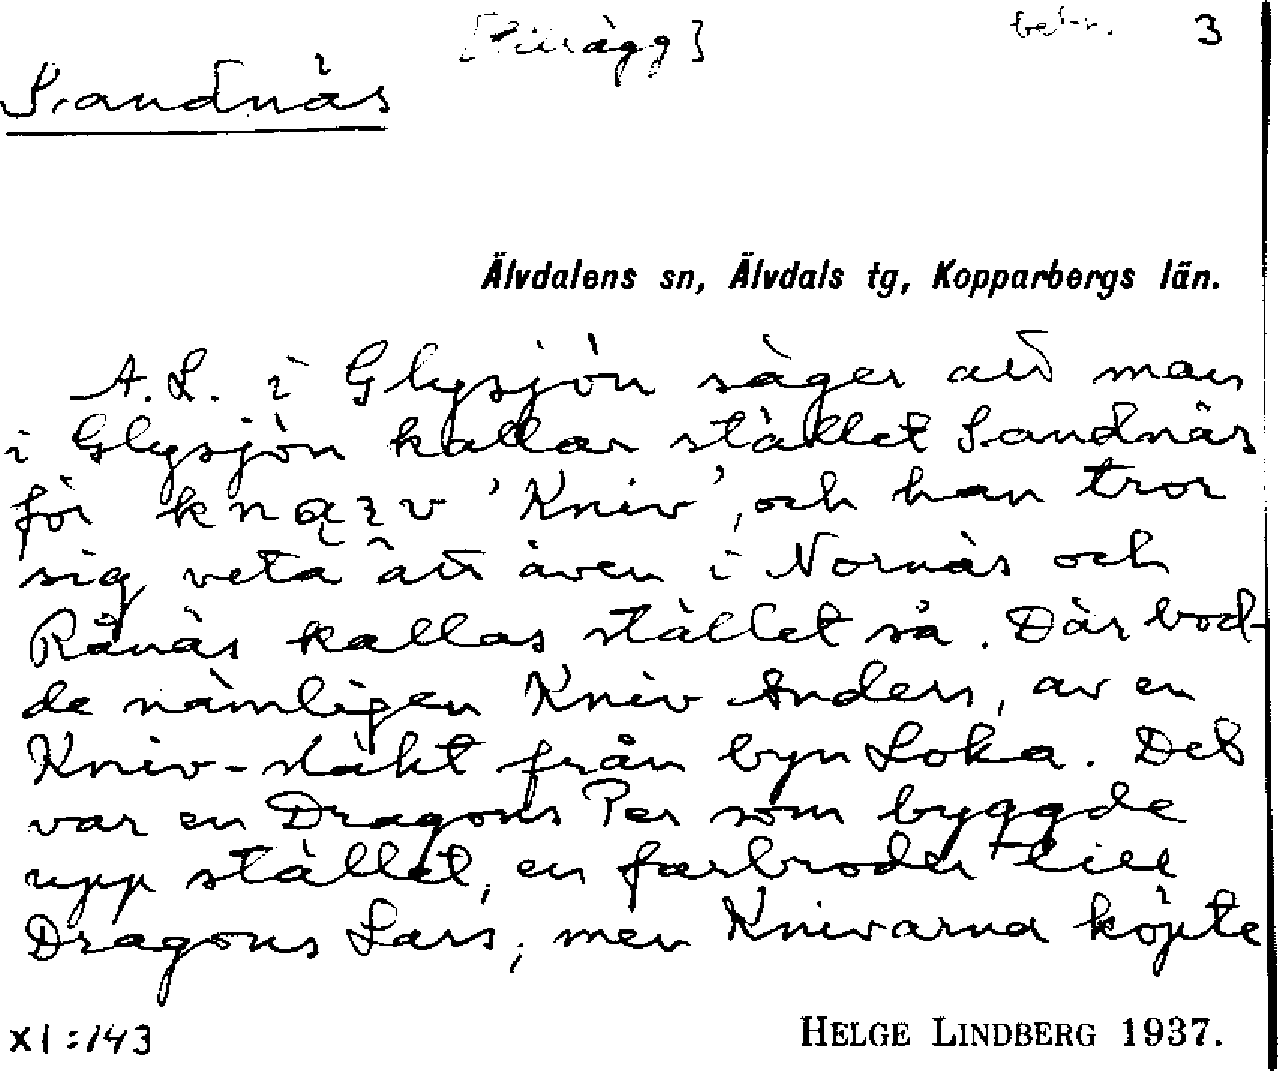 [Tillägg] bebr. 3
Sandnäs
Älvdalens sn, Älvdals tg, Kopparbergs län.
A.L. i Glysjön säger att man
i Glysjön kallar stället Sandnäs
för knąɪv 'Kniv', och han tror
sig veta att även i Nornäs och
Rånäs kallas stället så. Där bod-
de nämligen Kniv Anders, av en
Kniv-släkt från byn Loka. Det
var en Dragons Per som byggde
upp stället, en farbroder till
Dragons Lars, men Knivarna köpte
XI:143 HELGE LINDBERG 1937.